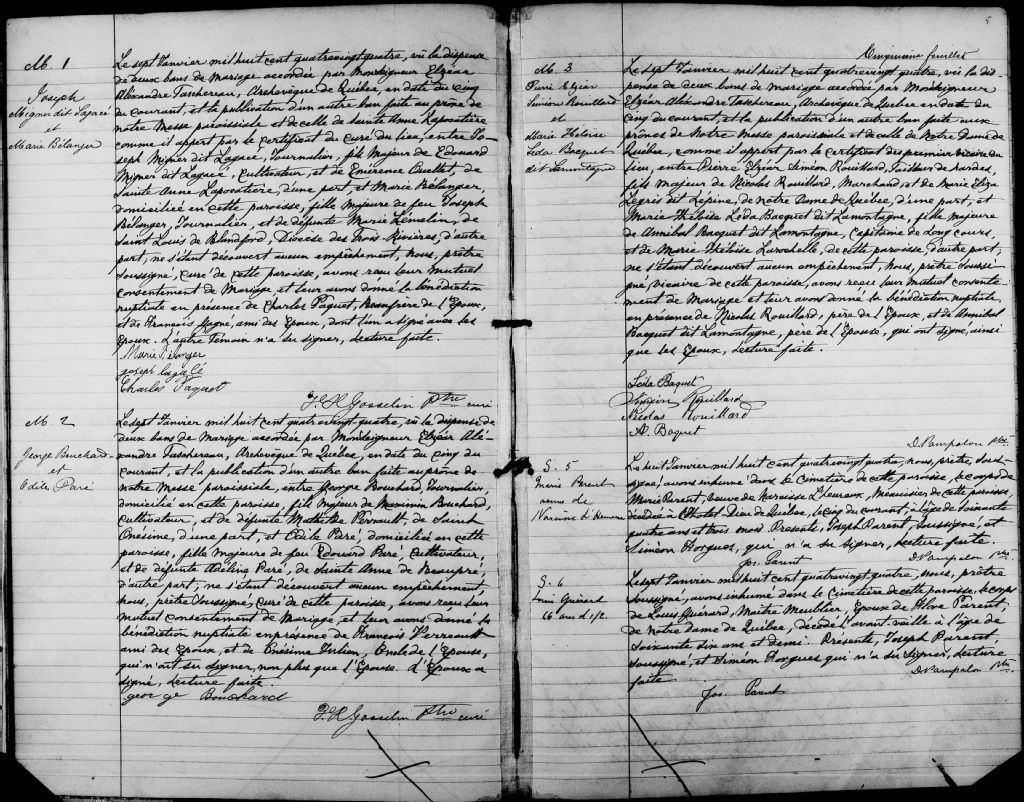 M. 1
Joseph
Migner dit Lagacé
et
Marie Bélanger
Le sept Janvier mil huit cent quatrevingt quatre, vû la dispense
de deux bans de Mariage accordée par Monseigneur Elzéar
Alexandre Taschereau, Archevêque de Québec, en date du cinq
du courant, et la publication d'un autre ban faite au prône de
notre Messe paroissiale et de celle de Sainte Anne Lapocatière
comme il appert par le certificat du curé du lieu, entre Jo-
seph Migner dit Lagacé, Journalier, fils majeur de Edouard
Migner dit Lagacé, Cultivateur, et de Emérence Ouellet, de
Sainte Anne Lapocatière, d'une part, et Marie Bélanger,
domiciliée en cette paroisse, fille Majeure de feu Joseph
Bélanger, Journalier, et de défunte Marie Lemelin, de
Saint Louis de Blandford, Diocèse des Trois-Rivières, d'autre
part; ne s'étant découvert aucun empêchement, Nous, prêtre
soussigné, curé de cette paroisse, avons reçu leur mutuel
consentement de Mariage, et leur avons donné la bénédiction
nuptiale en présence de Charles Paquet Beaufrère de l'Epoux,
et de François Gagné, ami des Epoux, dont l'un a signé avec les
Epoux. L'autre Témoin n'a su signer, Lecture faite.
Marie Bélanger
joseph lagacé
Charles Paquet
F. X. Gosselin Ptre curé
M. 2
George Bouchard
et
Odile Paré
Le sept Janvier mil huit cent quatrevingt quatre, vû la dispense de
deux bans de Mariage accordée par Monseigneur Elzéar Alé-
xandre Taschereau, Archevêque de Québec, en date du cinq du
courant, et la publication d'un autre ban faite au prône de
notre Messe paroissiale, entre George Bouchard, Journalier,
domicilié en cette paroisse, fils Majeur de Maximin Bouchard,
Cultivateur, et de défunte Mathilde Perrault, de Saint
Onésime, d'une part, et Odile Paré, domiciliée en cette
paroisse, fille majeure de feu Edouard Paré, Cultivateur,
et de défunte Adéline Paré, de Sainte Anne de Beaupré,
d'autre part; ne s'étant découvert aucun empêchement,
Nous, prêtre soussigné, curé de cette paroisse, avons reçu leur
mutuel consentement de Mariage, et leur avons donné la
bénédiction nuptiale en présence de François Perreault
ami des Epoux, et de Onésime Julien, Oncle de l'Epouse,
qui n'ont su signer, non plus que l'Epouse. L'Epoux a
signé, Lecture faite.
george Bouchard
F. X. Gosselin Ptre curé
5
Cinquième feuillet
M. 3
Pierre Elzéar
Siméon Rouillard
et
Marie Théloïse
Léda Bacquet
dit Lamontagne
Le sept Janvier mil huit cent quatrevingt quatre, vû la dis-
pense de deux bans de mariage accordée par Monseigneur
Elzéar Alexandre Taschereau, Archevêque de Québec en date du
cinq du courant, et la publication d'un autre ban faite aux
prônes de Notre Messe paroissiale et de celle de Notre Dame de
Québec, comme il appert par le certificat du premier vicaire du
lieu, entre Pierre Elzéar Siméon Rouillard, Tailleur de hardes,
fils majeur de Nicolas Rouillard, Marchand, et de Marie Eliza
Legris dit Lépine, de Notre Dame de Québec, d'une part, et
Marie Théloïse Léda Bacquet dit Lamontagne, fille majeure
de Annibal Bacquet dit Lamontagne, Capitaine de Long cours,
et de Marie Théloïse Larochelle, de cette paroisse, d'autre part;
ne s'étant découvert aucun empêchement, Nous, prêtre soussi-
gné, vicaire de cette paroisse, avons reçu leur mutuel consente-
ment de Mariage et leur avons donné la bénédiction nuptiale
en présence de Nicolas Rouillard, père de l'Epoux, et de Annibal
Bacquet dit Lamontagne, père de l'Epouse, qui ont signé, ainsi
que les Epoux, Lecture faite.
Léda Baquet
Siméon Rouillard
Nicolas Rouillard
A. Baquet
D. Pampalon Ptre.
S. 5
Marie Parent
veuve de
Narcisse L'Heureux
Le huit Janvier mil huit cent quatrevingt quatre, nous, prêtre, sous-
signé, avons inhumé dans le Cimetière de cette paroisse, le corps de
Marie Parent, veuve de Narcisse L'heureux, Menuisier de cette paroisse,
décédée à l'Hotel-Dieu de Québec, le cinq du courant, à l'âge de soixante
quatre ans et trois mois. Présents, Joseph Parent, soussigné, et
Siméon Dorgues, qui n'a su signer, Lecture faite.
Jos. Parent
D. Pampalon Ptre.
S. 6
Louis Guérard
66 ans d 1/2.
Le sept Janvier mil huit cent quatrevingt quatre, nous, prêtre
soussigné, avons inhumé dans le Cimetière de cette paroisse, le corps
de Louis Guérard, Maître Meublier, Epoux de Flore Parent,
de Notre Dame de Québec, décédé l'avant veille à l'âge de
soixante dix ans et demi. Présents, Joseph Parent,
soussigné, et Siméon Dorgues qui n'a su signer, Lecture
faite
D. Pampalon Ptre.
Jos. Parent